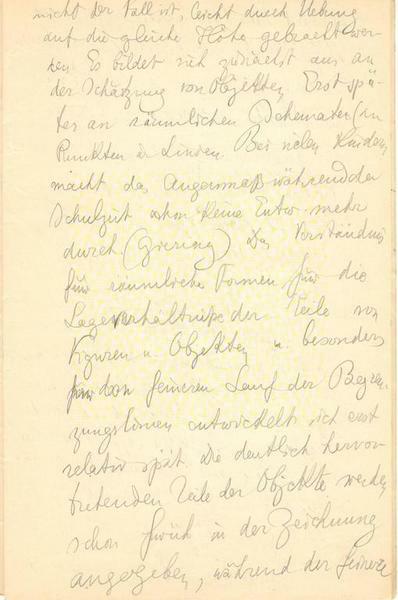 nicht der Fall ist, leicht durch Uebung
auf die gleiche Höhe gebracht wer-
den. Es bildet sich zunächst aus an
der Schätzung von Objekten. Erst spä-
ter an räumlichen Schematen (an
Punkten u. Linien. Bei vielen Kindern
macht das Augenmaß während der
Schulzeit schon keine Entw. mehr
durch. (Giering) Das Verständnis
für räumliche Formen für die
Lageverhältnisse der Teile von
Figuren u. Objekten u. besonders
für den feineren Lauf der Begren-
zungslinien entwickelt sich erst
relativ spät. Die deutlich hervor-
tretenden Teile der Objekte werden
schon früh in der Zeichnung
angegeben, während der feinere